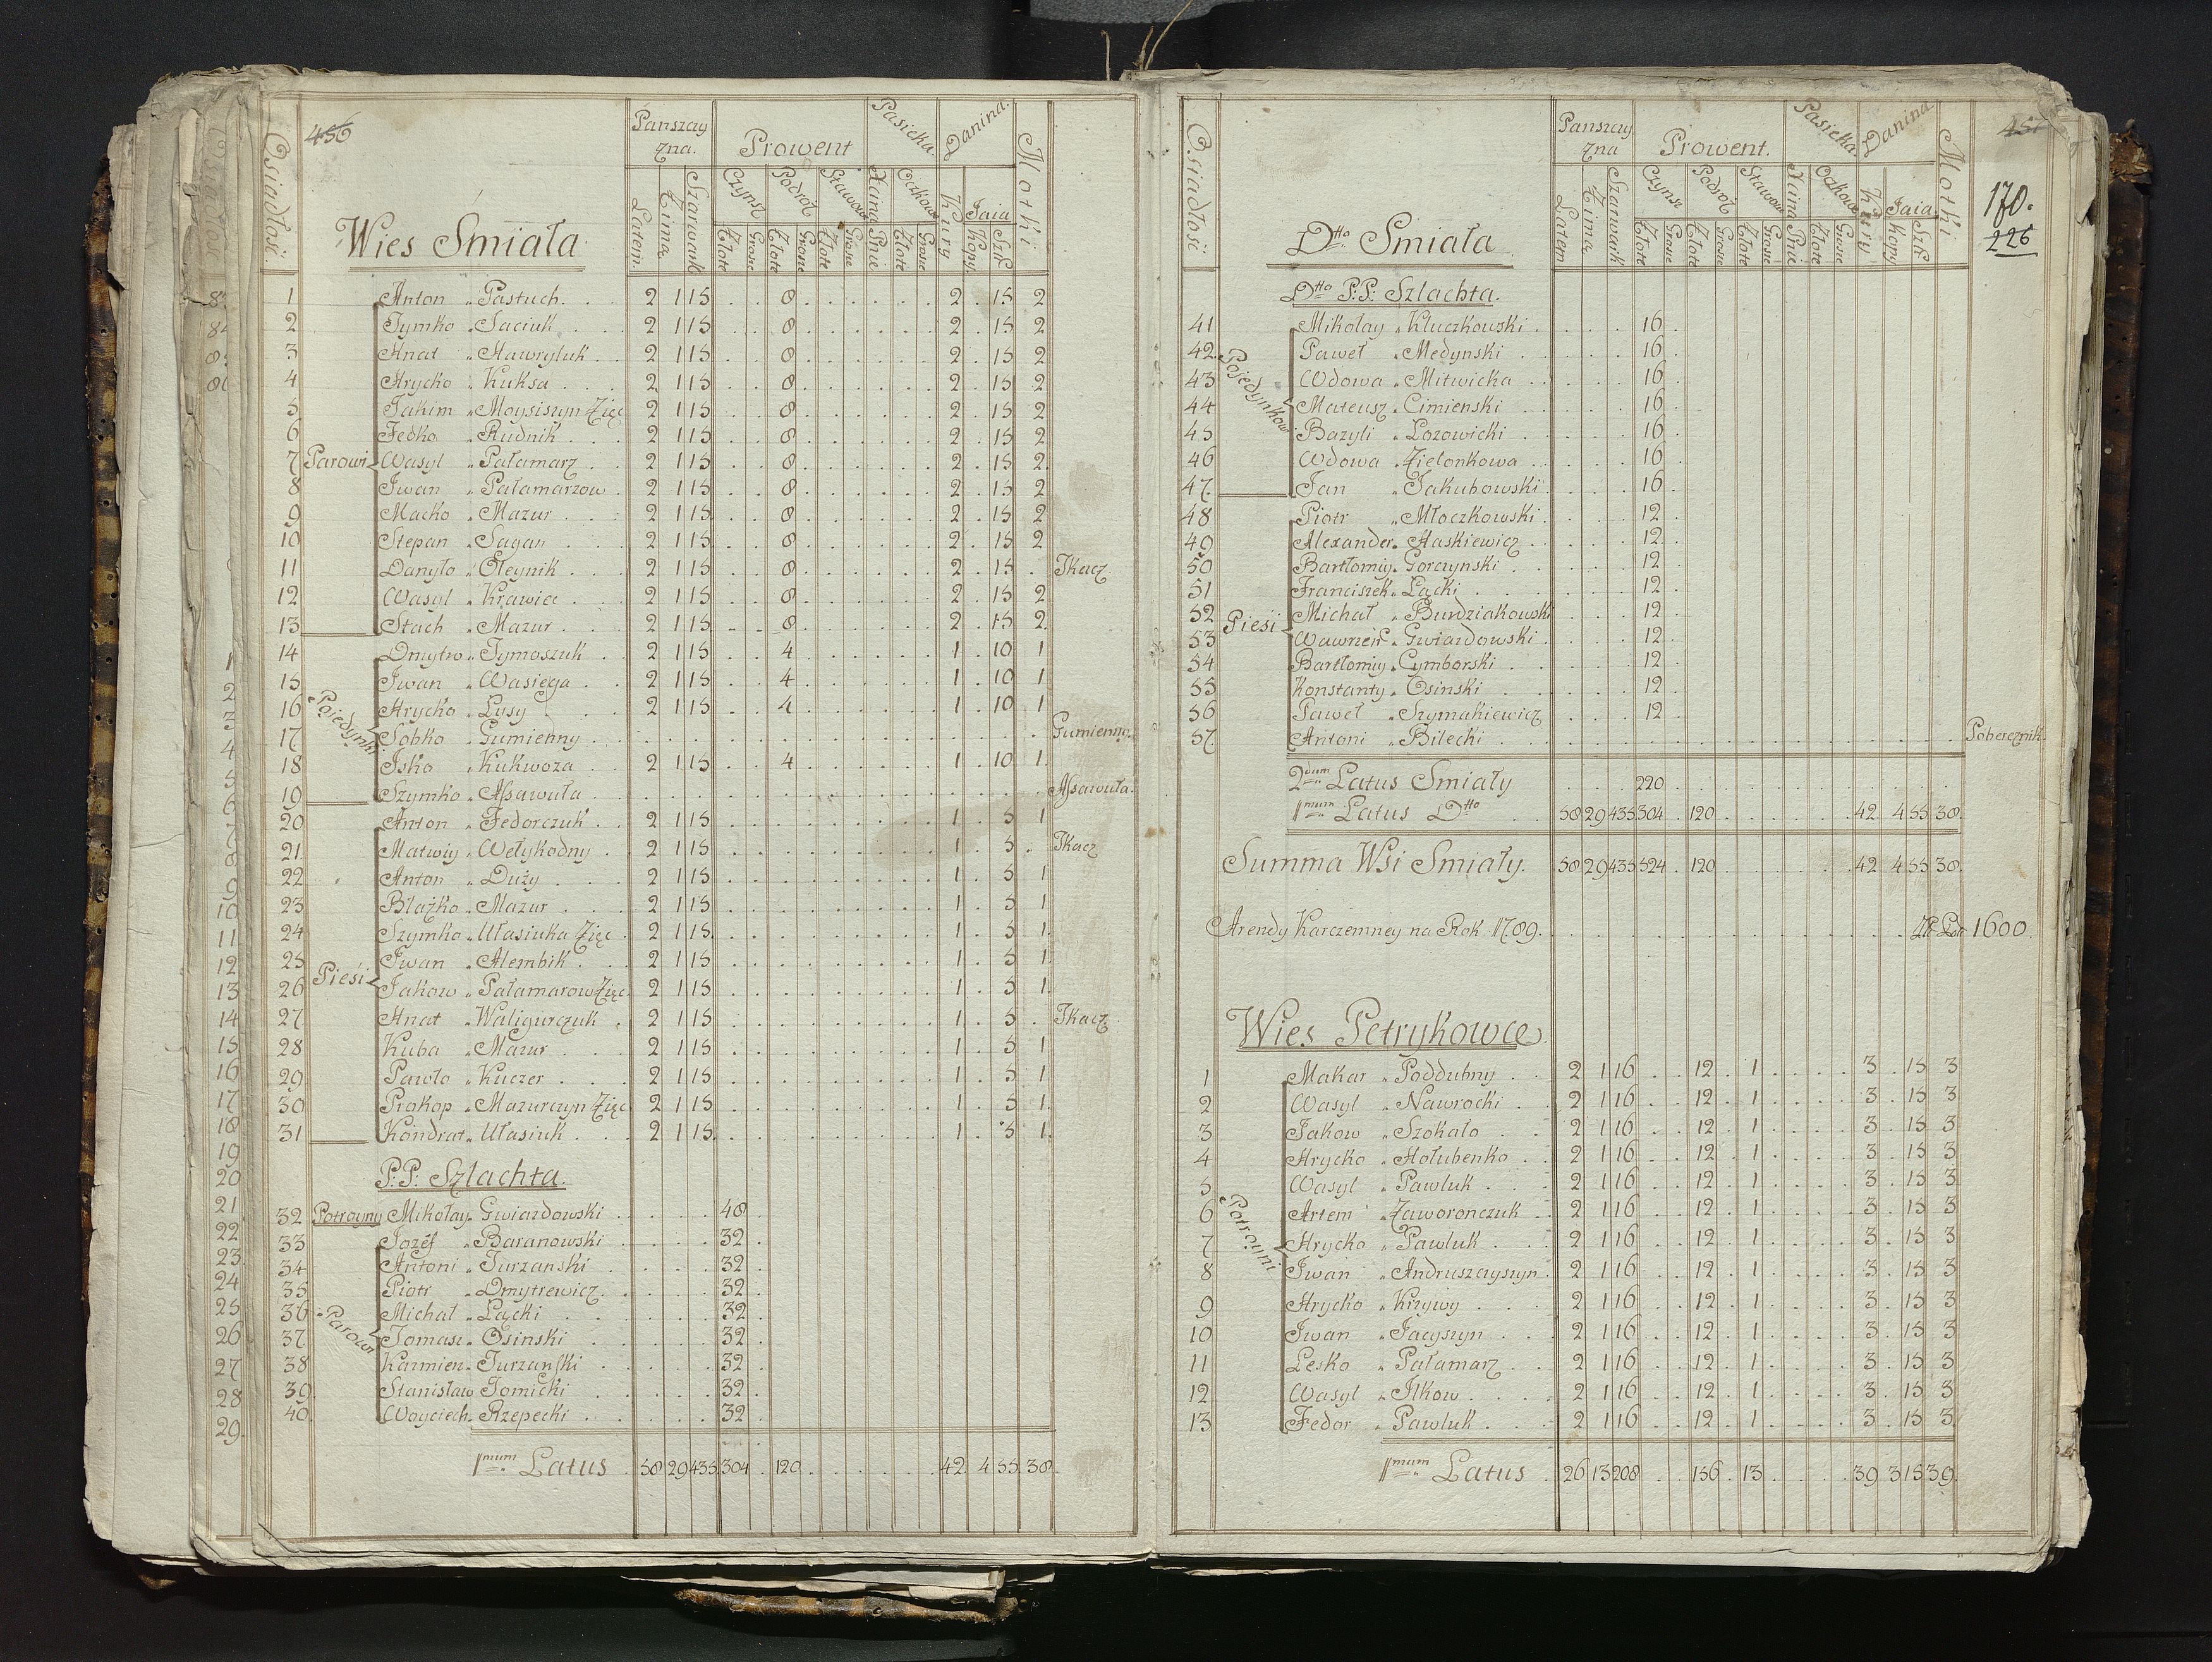 456
Osiadłość
Panszczyzna.
Prowent
Pasieka
Danina.
Motki
Latem.
Zimą
Szarwark
Czynsz
Podroż
Stawow
Zimą
Oczkowe
Kury
Jaia
Złote
Grosze
Złote
Grosze
Złote
Grosze
Pnie
Złote
Grosze
Kopy
Szt
Wies Smiała
1 Anton „ Pastuch . . 2 1 15 . . 8 . . . . . . 2 . 15 2
2 Tymko „ Saciuk . 2 1 15 . . 8 . . . . . . 2 . 15 2
3 Hnat „ Hawryluk . 2 1 15 . . 8 . . . . . . 2 . 15 2
4 Hrycko „ Kuksa . . 2 1 15 . . 8 . . . . . . 2 . 15 2
5 Jakim „ Moysiszyn Zięc 2 1 15 . . 8 . . . . . . 2 . 15 2
6 Fedko „ Rudnik . . 2 1 15 . . 8 . . . . . . 2 . 15 2
7 Parowi Wasyl „ Pałamarz . 2 1 15 . . 8 . . . . . . 2 . 15 2
8 Iwan „ Pałamarzow . 2 1 15 . . 8 . . . . . . 2 . 15 2
9 Macko „ Mazur . . 2 1 15 . . 8 . . . . . . 2 . 15 2
10 Stepan „ Sagan . . 2 1 15 . . 8 . . . . . . 2 . 15 2
11 Danyło „ Oleynik . . 2 1 15 . . 8 . . . . . . 2 . 15 . Tkacz.
12 Wasyl „ Krawiec . . 2 1 15 . . 8 . . . . . . 2 . 15 2
13 Stach „ Mazur . . 2 1 15 . . 8 . . . . . . 2 . 15 2
14 Dmytro „ Tymoszuk . 2 1 15 . . 4 . . . . . . 1 . 10 1
15 Iwan „ Wasięga . . 2 1 15 . . 4 . . . . . . 1 . 10 1
16 Pojedynki Hrycko „ Łysy . 2 1 15 . . 4 . . . . . . 1 . 10 1
17 Sobko „ Gumienny . . . . . . . . . . . . . . . . Gumienny.
18 Isko „ Kukwoza . . 2 1 15 . . 4 . . . . . . 1 . 10 1
19 Szymko „ Assawuła . . . . . . . . . . . . . . . . Assawuła.
20 Anton „ Fedorczuk . 2 1 15 . . . . . . . . . 1 . 5 1
21 Matwiy „ Wełykodny . 2 1 15 . . . . . . . . . 1 . 5 . Tkacz
22 Anton „ Duży . . 2 1 15 . . . . . . . . . 1 . 5 1
23 Błażko „ Mazur . . 2 1 15 . . . . . . . . . 1 . 5 1
24 Szymko „ Ułasiuka Zięc . 2 1 15 . . . . . . . . . 1 . 5 1
25 Iwan „ Alembik . . 2 1 15 . . . . . . . . . 1 . 5 1
26 Pieśi Jakow „ Pałamarow Zięc 2 1 15 . . . . . . . . . 1 . 5 1
27 Hnat „ Waligurczuk . 2 1 15 . . . . . . . . . 1 . 5 . Tkacz
28 Kuba „ Mazur . . 2 1 15 . . . . . . . . . 1 . 5 1
29 Pawło „ Kuczer . . 2 1 15 . . . . . . . . . 1 . 5 1
30 Prokop „ Mazurczyn Zięc 2 1 15 . . . . . . . . . 1 . 5 1
31 Kondrat „ Ułasiuk . . 2 1 15 . . . . . . . . . 1 . 5 1
P:P: Szlachta.
32 Potroyny Mikołay „ Gwiazdowski . . . . 48 .
33 Jozéf „ Baranowski . . . . 32 .
34 Antoni „ Turzanski . . . . 32 .
35 Piotr „ Dmytrewicz . . . . 32 .
36 Parowi Michał „ Łącki . . . . 32 .
37 Tomasz „ Osinski . . . . 32 .
38 Kazmierz „ Turzanski . . . . 32 .
39 Stanisław Tomicki . . . . 32 .
40 Woyciech „ Rzepecki . . . . 32 .
1mum Latus . 58 29 435 304 . 120 . . . . . . 42 . 4 55 38.
457
170.
226
Osiadłość
Panszczyzna
Prowent.
Pasieka.
Danina
Motki
Latem
Zimą
Szarwark
Czynsz
Podroż
Stawow
Zimą
Oczkowe
Kury
Jaia.
Złote
Grosze
Złote
Grosze
Złote
Grosze
Pnie
Złote
Grosze
Kopy
Szt
Dtto Smiała
Dtto P:P: Szlachta.
41 Mikołay „ Kluczkowski . . . . 16 .
42 Paweł „ Medynski . . . . 16 .
43 Pojedynkowi Wdowa „ Mitwicka . . . . 16 .
44 Mateusz „ Cimienski . . . . 16 .
45 Bazyli „ Lozowicki . . . . 16 .
46 Wdowa „ Zielonkowa . . . . 16 .
47 Jan „ Jakubowski . . . . 16 .
48 Piotr „ Młoczkowski . . . . 12 .
49 Alexander „ Haskiewicz . . . . 12 .
50 Bartłomiy „ Gorczynski . . . . 12 .
51 Franciszek „ Łącki . . . . 12 .
52 Michał „ Burdziakowski . . . 12 .
53 Pieśi Wawrzeniec „ Gwiazdowski . . . . 12 .
54 Bartłomiy „ Cymborski . . . . 12 .
55 Konstanty „ Osinski . . . . 12 .
56 Paweł „ Szymakiewicz . . . . 12 .
57 Antoni „ Bilecki . . . . . . . . . . . . . . . . Pobereznik.
2dum Latus Smiały . . . 220 . . . . . . . . . . . .
1mum Latus Dtto . . 58 29 435 304 . 120 . . . . . . 42 . 4 55 38.
Summa Wsi Smiały. 58 29 435 524 . 120 . . . . . . 42 . 4 55 38.
Arendy Karczemney na Rok 1789. . . . . . . . . . . . . Zł Pol: 1600.
Wies Petrykowce
1 Makar „ Poddubny . . 2 1 16 . . 12 . 1 . . . . 3 . 15 3
2 Wasyl „ Nawrocki . 2 1 16 . . 12 . 1 . . . . 3 . 15 3
3 Jakow „ Szokało . . 2 1 16 . . 12 . 1 . . . . 3 . 15 3
4 Hrycko „ Hołubenko . . 2 1 16 . . 12 . 1 . . . . 3 . 15 3
5 Wasyl „ Pawluk . . 2 1 16 . . 12 . 1 . . . . 3 . 15 3
6 Potroyni Artem „ Zaworonczuk . . 2 1 16 . . 12 . 1 . . . . 3 . 15 3
7 Hrycko „ Pawluk . . 2 1 16 . . 12 . 1 . . . . 3 . 15 3
8 Iwan „ Andruszczyszyn . 2 1 16 . . 12 . 1 . . . . 3 . 15 3
9 Hrycko „ Krzywy . . 2 1 16 . . 12 . 1 . . . . 3 . 15 3
10 Iwan „ Jacyszyn . . 2 1 16 . . 12 . 1 . . . . 3 . 15 3
11 Lesko „ Pałamarz . . 2 1 16 . . 12 . 1 . . . . 3 . 15 3
12 Wasyl „ Ilkow . . . 2 1 16 . . 12 . 1 . . . . 3 . 15 3
13 Fedor „ Pawluk . . . 2 1 16 . . 12 . 1 . . . . 3 . 15 3
1mum Latus . 26 13 208 . . 156 . 13 . . . . 39 3 15 39.